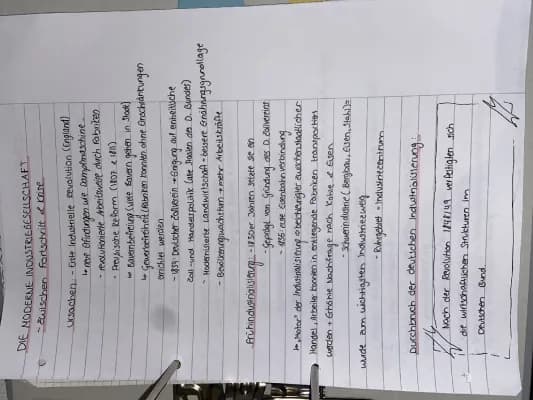 DIE MODERNE INDUSTRIEGESELLSCHAFT
- zwischen Fortschritt & Krise
Ursachen: - Erste Industrielle Revolution (England)
↳ neue Erfindungen wie Dampfmaschine
- revolutionierte Arbeitsweise durch Fabriken
- Preußische Reform (1807 & 1811)
↳ Bauernbefreiung (viele Bauern gehen in Stadt)
↳ Gewerbefreiheit (Fabriken konnten ohne Einschränkungen
errichtet werden
- 1834 Deutscher Zollverein → Einigung auf einheitliche
Zoll- und Handelspolitik (alle Staaten des D. Bundes)
- Modernisierte Landwirtschaft → bessere Ernährungsgrundlage
- Bevölkerungswachstum → mehr Arbeitskräfte
Frühindustrialisierung: - 1830er Jahren setzte sie an
- Geprägt von Gründung des D. Zollvereins
- 1835 erste Eisenbahnverbindung
↳ "Motor" der Industrialisierung → beschleunigter zwischenstaatlicher
Handel, Arbeiter konnten in entlegende Fabriken transportiert
werden + Erhöhte Nachfrage nach Kohle & Eisen
- Schwerindustrie (Bergbau, Eisen, Stahl)
wurde zum wichtigsten Industriezweig
- Ruhrgebiet - Industriezentrum
Durchbruch der deutschen Industrialisierung:
Nach der Revolution 1848/49 verfestigten sich
die wirtschaftlichen Strukturen im
Deutschen Bund.